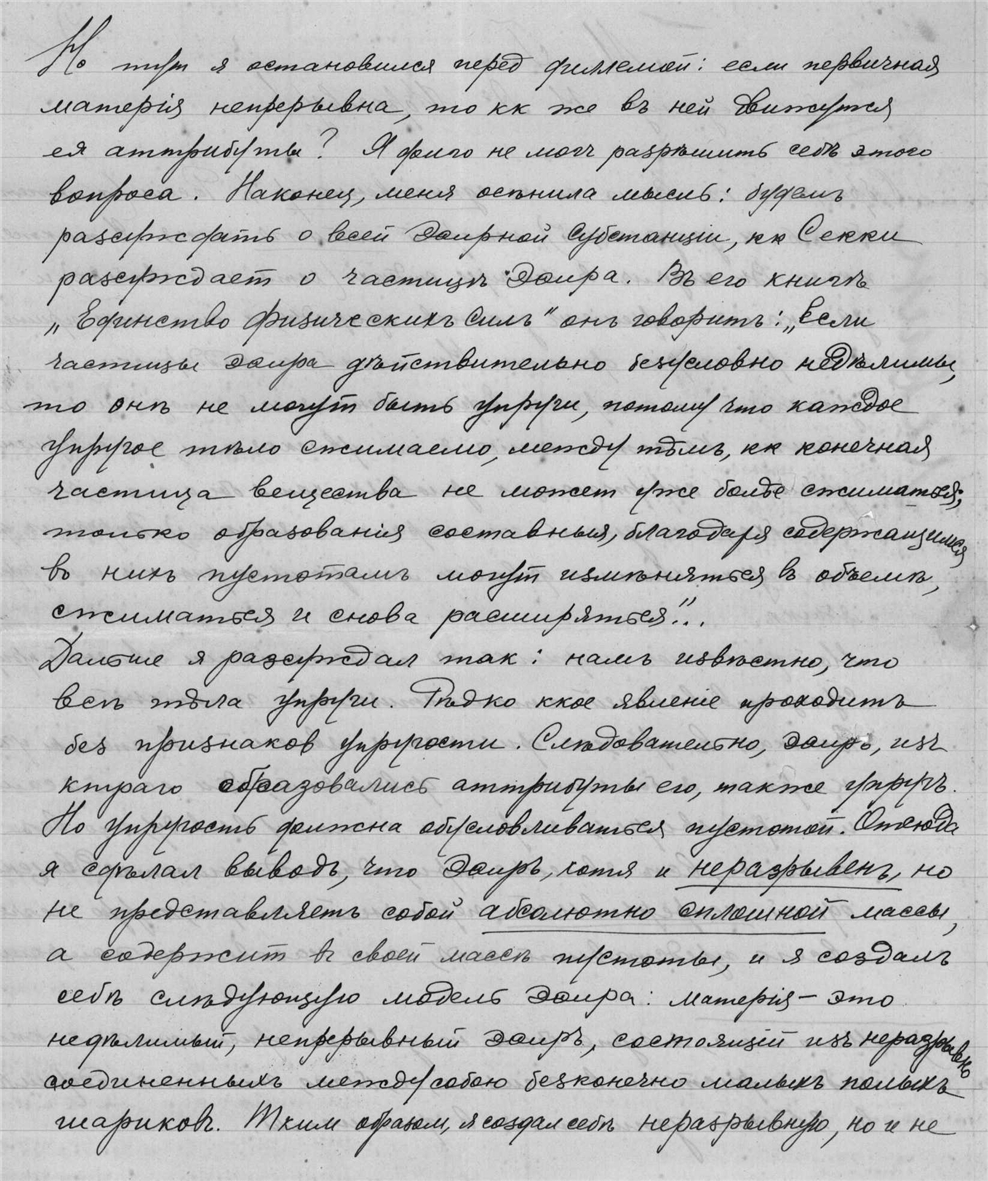 Но тут я остановился перед диллемой: если первичная
матерія непрерывна, то кк же въ ней движутся
ея аттрибуты? Я долго не могъ разрѣшить себѣ этого
вопроса. Наконец, меня осѣнила мысль: будемъ
разсуждать о всей эѳирной субстанціи, кк Секки
разсуждает о частицѣ эѳира. Въ его книгѣ
„Единство физическихъ силъ" онъ говоритъ: „Если
частицы эѳира дѣйствительно безусловно недѣлимы,
то онѣ не могут быть упруги, потому что каждое
упругое тѣло сжимаемо, между тѣмъ, кк конечная
частица вещества не может уже болѣе сжиматься;
только образованія составныя, благодаря содержащимся
въ нихъ пустотамъ могут измѣняться в объемѣ,
сжиматься и снова расширяться"...
Дальше я разсуждал так: намъ извѣстно, что
всѣ тѣла упруги. Рѣдко ккое явленіе проходитъ
без признаков упругости. Слѣдовательно, эѳиръ, изъ
ктраго образовались аттрибуты его, также упругъ.
Но упругость должна обусловливаться пустотой. Отсюда
я сдѣлал выводъ, что эѳиръ, хотя и неразрывенъ, но
не представляетъ собой абсолютно сплошной массы,
а содержит в своей массѣ пустоты, и я создалъ
себѣ слѣдующую модель эѳира: матерія – это
недѣлимый, непрерывный эѳиръ, состоящій изъ неразрывно
соединенныхъ между собою безконечно малыхъ полыхъ
шариковъ. Тким образом, я создал себѣ неразрывную, но и не